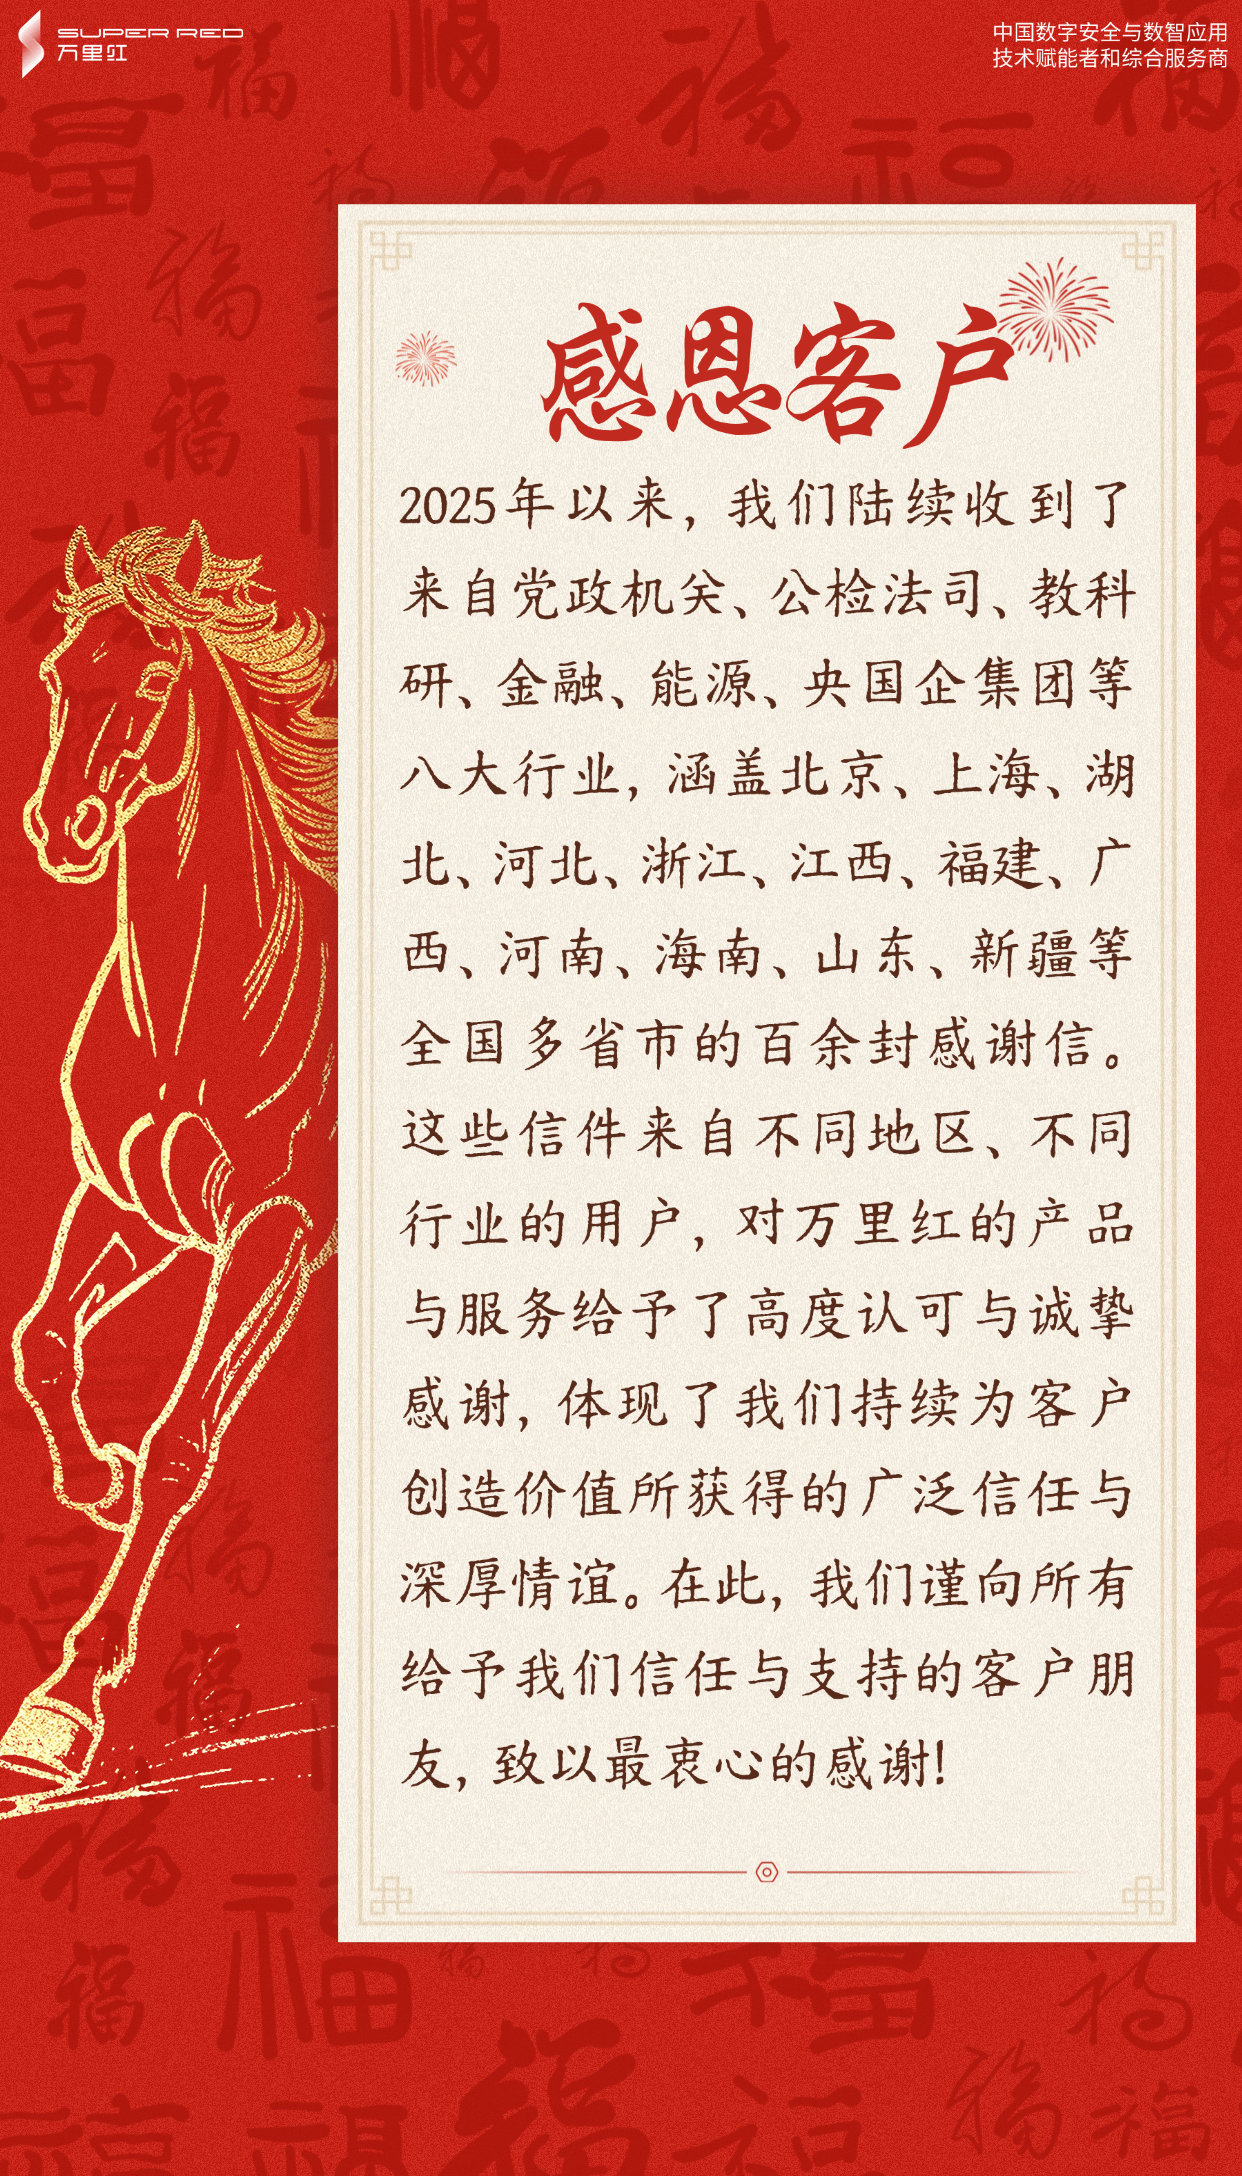 SUPER RED
万里红
中国数字安全与数智应用
技术赋能者和综合服务商
感恩客户
2025年以来，我们陆续收到了
来自党政机关、公检法司、教科
研、金融、能源、央国企集团等
八大行业，涵盖北京、上海、湖
北、河北、浙江、江西、福建、广
西、河南、海南、山东、新疆等
全国多省市的百余封感谢信。
这些信件来自不同地区、不同
行业的用户，对万里红的产品
与服务给予了高度认可与诚挚
感谢，体现了我们持续为客户
创造价值所获得的广泛信任与
深厚情谊。在此，我们谨向所有
给予我们信任与支持的客户朋
友，致以最衷心的感谢！